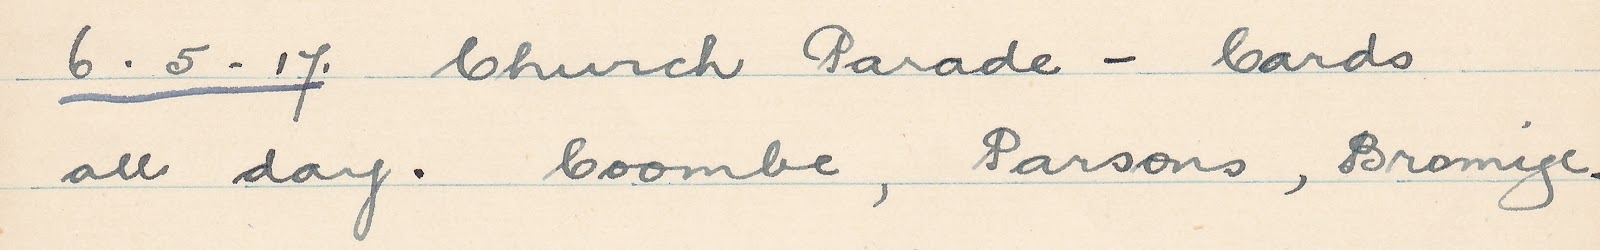 6.5-17. Church Parade - Cards
all day. Coombe, Parsons, Bromige.